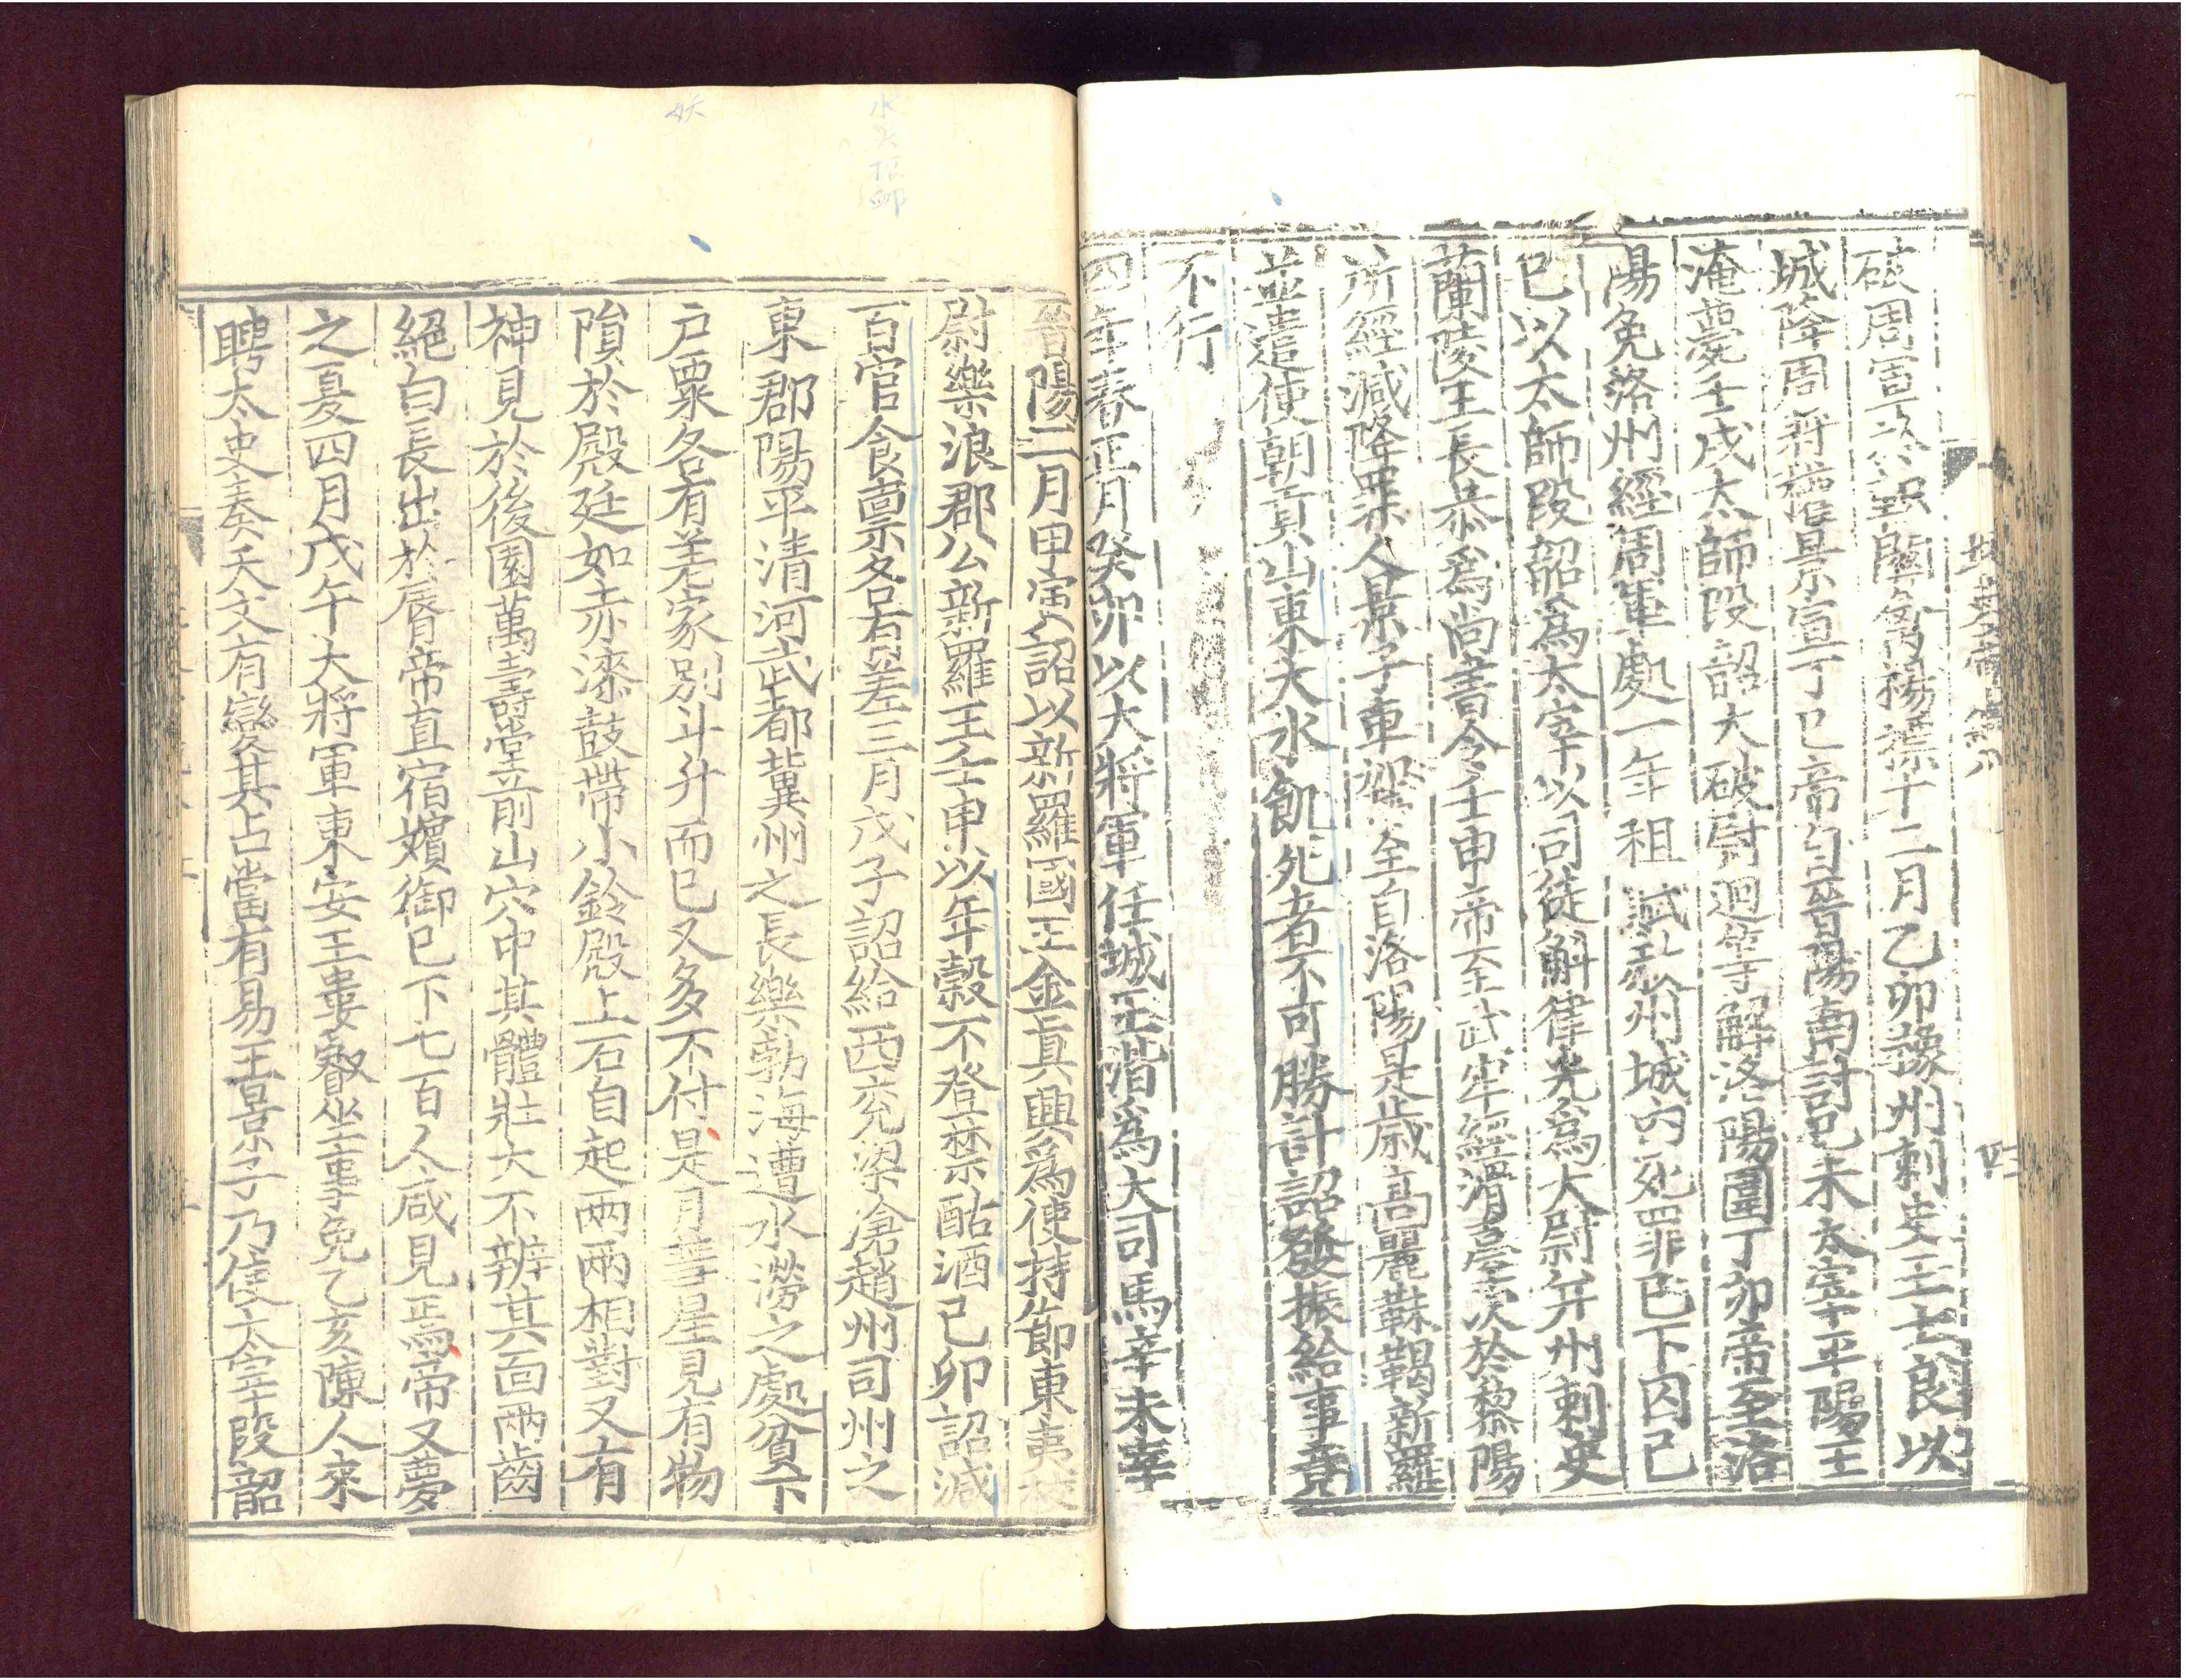 破周軍於軹關擒楊檦十二月乙卯豫州刺史王士良以
城降周將權景宣丁巳帝自晉陽南討己未太宰平陽王
淹薨壬戌太師段韶大破尉迥等解洛陽圍丁卯帝至洛
陽免洛州經周軍處一年租賦赦州城內死罪已下囚己
巳以太師段韶爲太宰以司徒斛律光爲太尉并州刺史
蘭陵王長恭爲尚書令壬申帝至武牢經滑臺次於黎陽
所經減降罪人景子車駕至自洛陽是歲高麗靺鞨新羅
並遣使朝貢山東大水飢死者不可勝計詔發振給事竟
不行
四年春正月癸卯以大將軍任城王湝爲大司馬辛未幸
晉陽二月甲寅詔以新羅國王金眞興爲使持節東夷校
尉樂浪郡公新羅王壬申以年穀不登禁酤酒己卯詔減
百官食稟各有差三月戊子詔給西兗梁滄趙州司州之
東郡陽平清河武都冀州之長樂勃海遭水澇之處貧下
戶粟各有差家別斗升而已又多不付是月彗星見有物
隕於殿廷如赤漆鼓帶小鈴殿上石自起兩兩相對又有
神見於後園萬壽堂前山穴中其體壯大不辨其面兩齒
絕白長出於脣帝直宿嬪御已下七百人咸見焉帝又夢
之夏四月戊午大將軍東安王婁叡坐事免乙亥陳人來
聘太史奏天文有變其占當有易王景子乃使太宰段韶
妖